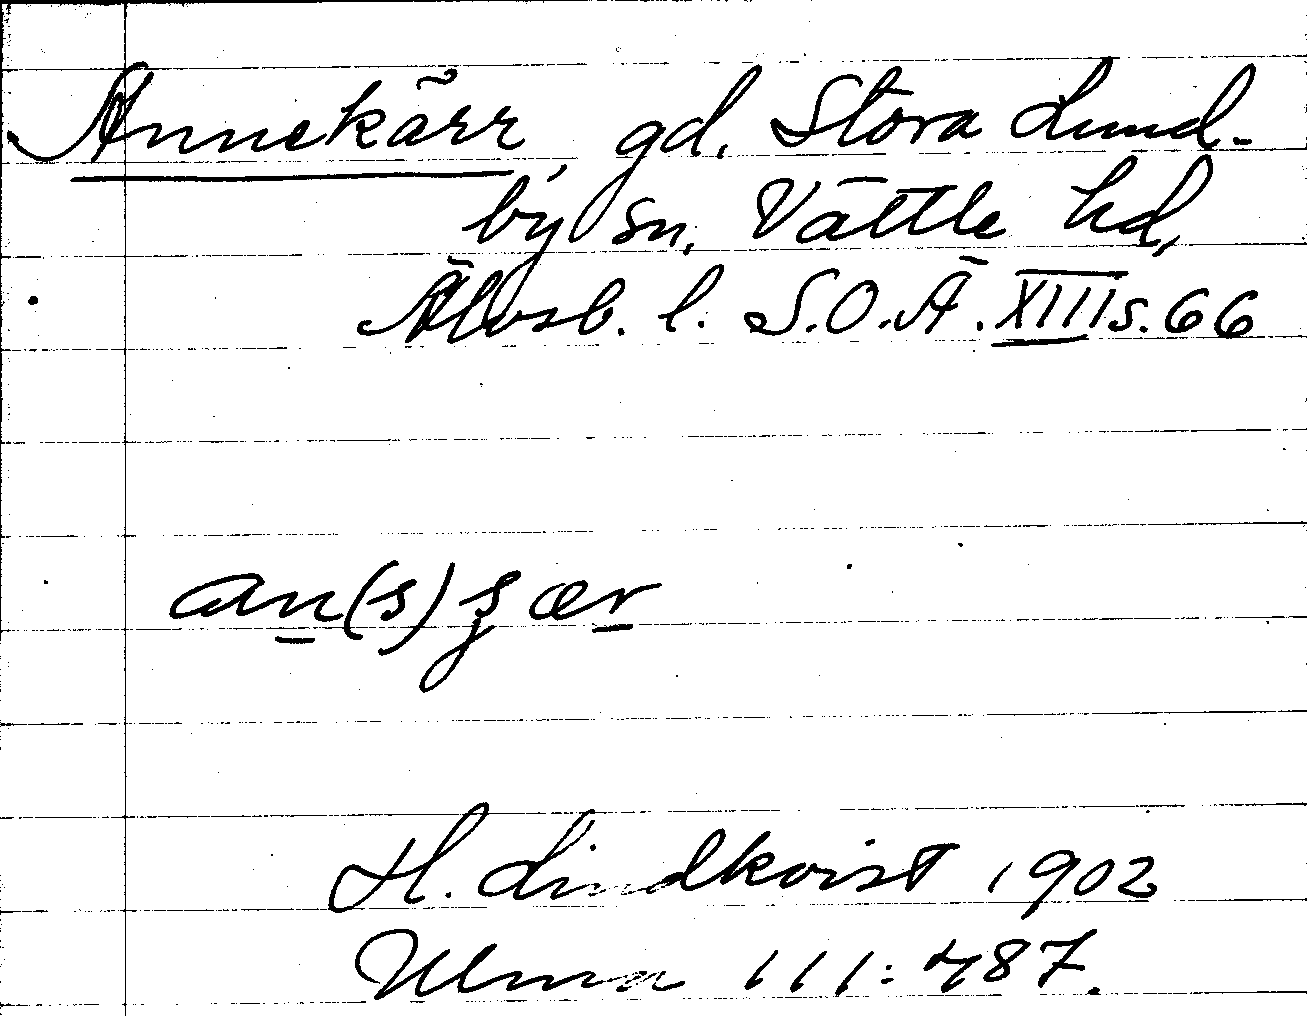 Annekärr, gd. Stora Lund-
by sn, Vättle hd,
Älvsb. l. S.O.Ä. XIII s. 66
an(s)
H. Lindkvist 1902
Ulma 111:487.